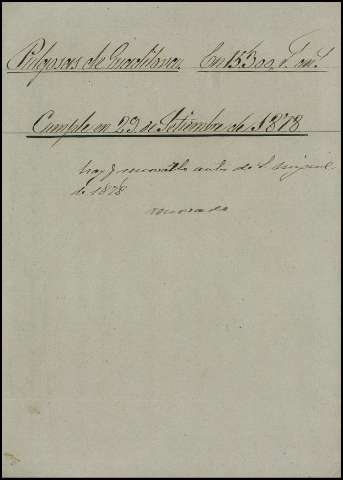 Pulgosas de Guadilova. En 15300 r.s an.s
Cumple en 29 de Setiembre de 1878
hay q renovarlo antes de S. Miguel
de 1878
renovado